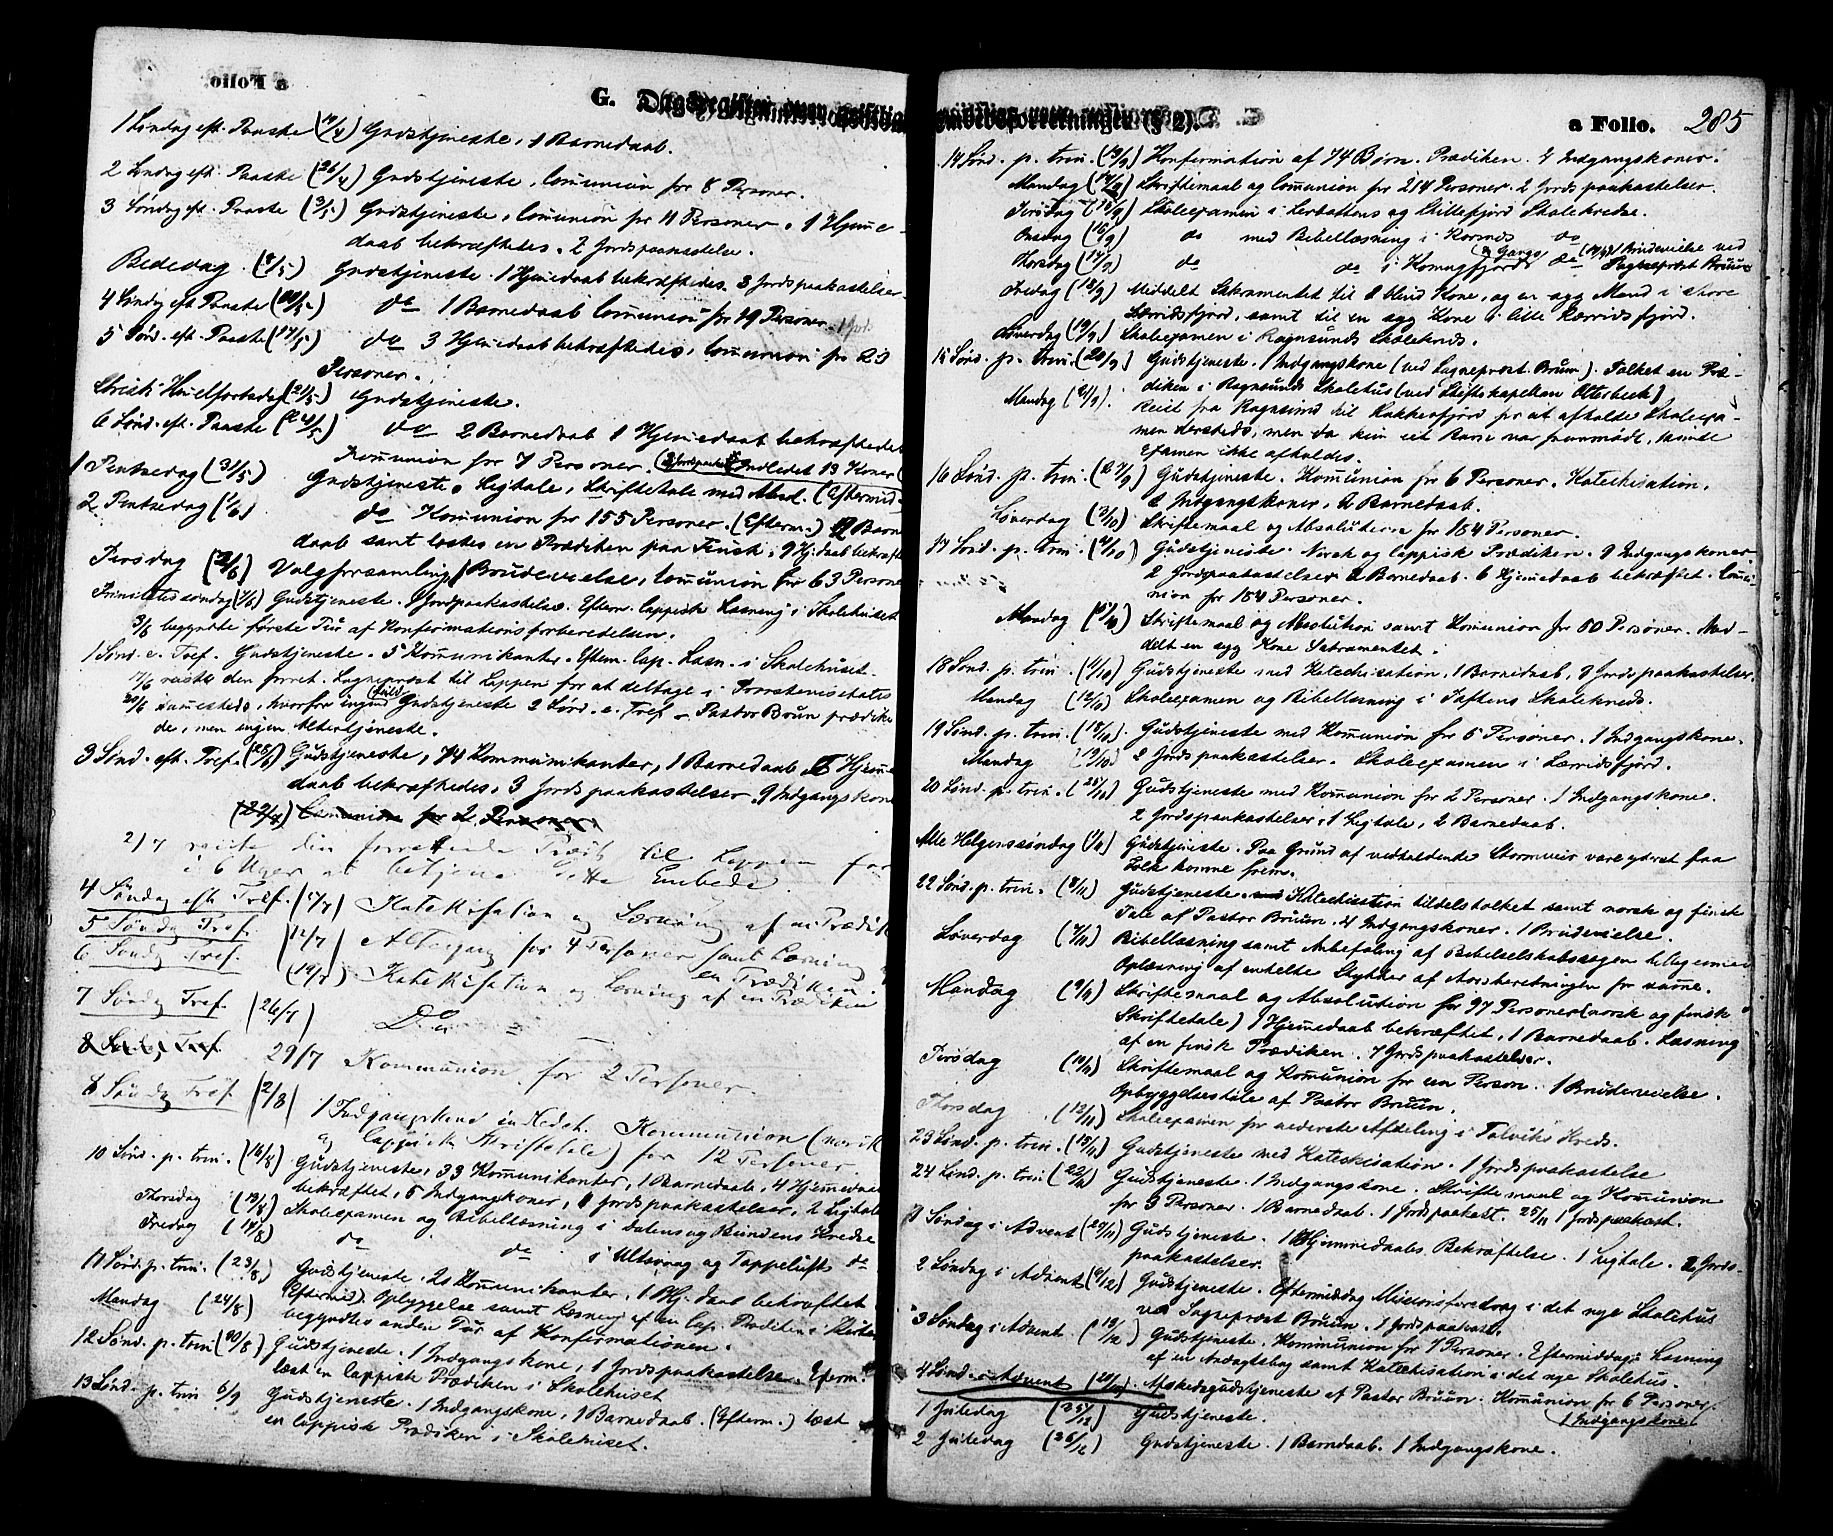 a Folio
G. Dagsregister
1 Søndag eft. Paaske (19/4) Gudstjeneste, 1 Barnedaab.
2 Søndag eft. Paaske (26/4) Gudstjeneste, Communion for 8 Personer.
3 Søndag eft. Paaske (3/5) Gudstjeneste, Communion for 11 Personer, 1 Hjemme-
daab bekræftedes. 2 Jordspaakastelse.
Bededag (8/5) Gudstjeneste. 1 Hjemedaab bekræftedes. 3 Jordspaakastelser.
4 Søndg eft. Paaske (10/5) do 1 Barnedaab Communion for 19 Personer
5 Sønd. eft. Paaske (17/5) do 3 Hjemedaab bekræftedes, Communion for 23
Personer.
Christi Himelfartsdag (21/5) Gudstjeneste.
6 Sønd. eft. Paaske (24/5) do 2 Barnedaab 1 Hjemedaab bekræftedet
Kommunion for 7 Personer. Indledet 13 Koner
1 Pentsedag (31/5) Gudstjeneste, Ligtale, Skriftetale med Absol. (Eftermid-
2 Pentsedag (1/6) do Kommunion for 155 Personer. (Efterm.) Barne
daab samt læstes en Prædiken paa Finsk, 9 Hj.daab bekræfte
Tirsdag (2/6) Valgforsamling, Brudevielse, Communion for 63 Persone
Trinitatissøndag (7/6) Gudstjeneste. Jordpaakastelse. Efterm. lappisk Læsning i Skolehuset
begyndte første Tur af Konfirmationsforberedelsen.
1 Sønd. e. Tref. Gudstjeneste. 5 Kommunikanter. Efterm. Lap. Læsn. i Skolehuset.
reiste den forret. Sogneprest til Loppen for at deltage i
hvorfor ingen Gudstjeneste 2 Sønd. e. Tref - Pastor Bruun prædike
de, men ingen Altertjeneste.
3 Sønd. eft. Tref. (28/6) Gudstjeneste, 74 Kommunikanter, 1 Barnedaab, Hjemme
daab bekræftedes, 3 Jordspaakastelser, 9 Indgangskone
Communion for 2 Personer.
2/7 reiste den forrettende Præst til Loppen for
i 6 Uger at betjene dette Embede.
4 Søndag eft Tref. Katekisation og Læsning af en Prædik
5 Søndg Tref. (12/7) Altergang for 4 Personer samt Læsning
en Prædiken.
6 Søndg Tref. (19/7) Katekisation og Læsning af en Prædiken
7 Søndg Tref. (26/7)
29/7 Kommunion for 2 Personer.
8 Søndg Tref. (2/8) 1 Indgangskone Kommunion (norsk
og lappisk Skriftetale) for 12 Personer.
10 Sønd. p. trin. (16/8) Gudstjeneste, 33 Kommunikanter, 1 Barnedaab, 4 Hjemedaab
bekræftet, 5 Indgangskoner, 1 Jordspaakastelser, 2 Ligtale
Thorsdag Skoleexamen og Bibellæsning i Dalens og Bundens Kredse
Fredag do do i Ultsvaag og Tappeluft do
11 Sønd. p. trin. (23/8) Gudstjeneste. 20 Kommunikanter, 1 Hj. daab bekræftet
(Eftermid) Oplyggelse samt Læsning af en lap. Prædiken i
Mandag (24/8) begyndtes anden Tur af Konfirmationen.
12 Sønd. p. trin (30/8) Gudstjeneste. 1 Indgangskone, 1 Jordspaakastelse. Efterm.
læst en lappisk Prædiken i Skolehuset
13 Sønd. p. trin 6/9 Gudstjeneste. 1 Indgangskone, 1 Barnedaab. (Efterm.) læst
en lappisk Prædiken i Skolehuset.
(§ 2).
a Folio. 285
14 Sønd. p. trin. (13/9) Konfirmation af 74 Børn. Prædiken. 4 Indgangskoner.
Mandag (14/9) Skriftemaal og Communion for 214 Personer. 2 Jordspaakastelser.
Tirsdag (15/9) Skoleexamen i Lerbotens og Stillefjord Skolekredse.
Onsdag (16/9) do med Bibellæsning i Korsnes do
Thorsdag (17/9) do do i Komagfjords & Gangs do 1 Brudevielse ved
Sogneprest Bruun
Fredag (18/9) Middelt Sakramentet til 1 blind Kone, og en syg Mand i Store
Lærridsfjord, samt til en syg Kone i Lille Lærridsfjord.
Løverdag (19/9) Skoleexamen i Rognsunds Skolekreds.
15 Sønd. p. trin. (20/9) Gudstjeneste. 1 Indgangskone (ved Sogneprest Bruun). Tolket en Præ-
diken i Rognsunds Skolehus (ved Stiftskapellan Otterbech)
Mandag (21/9). Reist fra Rognsund til Rakkenfjord for at afholde Skoleexa-
men dersteds, men da kun eet Barn var fremmødt, kunde
Examen ikke afholdes.
16 Sønd. p. trin. (27/9) Gudstjeneste. Kommunion for 6 Personer. Katechisation.
2 Indgangskoner, 2 Barnedaab.
Løverdag (3/10) Skriftemaal og Absolution for 154 Personer.
17 Sønd. p. trin. (4/10) Gudstjeneste. Norsk og lappisk Prædiken. 9 Indgangskoner
2 Jordspaakastelser 2 Barnedaab. 6 Hjemedaab bekræftet. Commu-
nion for 154 Personer.
Mandag (5/10) Skriftemaal og Absolution samt Kommunion for 60 Personer. Med-
delt en syg Kone Sakramentet.
18 Sønd. p. trin. (11/10) Gudstjeneste med Katechisation, 1 Barnedaab, 9 Jordspaakastelser.
Mandag (12/10) Skoleexamen og Bibellæsning i Toftens Skolekreds.
19 Sønd. p. trin. (18/10) Gudstjeneste med Kommunion for 5 Personer. 1 Indgangskone.
Mandag (19/10) 2 Jordspaakastelser. Skoleexamen i Lærridsfjord.
20 Sønd. p. trin. (25/10) Gudstjeneste med Kommunion for 2 Personer. 1 Indgangskone.
2 Jordspaakastelser, 1 Ligtale, 2 Barnedaab.
Alle Helgenssøndag (1/11) Gudstjeneste. Paa Grund af vedholdende Stormveir vare yderst faa
Folk komne frem.
22 Sønd. p. trin. (8/11) Gudstjeneste. Katechisation tildels tolket samt norsk og finsk
Tale af Pastor Bruun. 4 Indgangskoner. 1 Brudevielse.
Løverdag (7/11) Bibellæsning samt Anbefaling af Bibelselskabssagen
Oplæsning af enkelte Stykker af Aarsberetningen for samme.
Mandag (9/11) Skriftemaal og Absolution for 97 Personer (norsk og finsk
Skriftetale) 1 Hjemmedaab bekræftet, 1 Barnedaab. Læsning
af en finsk Prædiken. 7 Jordspaakastelser.
Tirsdag (10/11) Skriftemaal og Kommunion for een Person. 1 Brudevielse.
Opbyggelsestale af Pastor Bruun.
Thorsdag (12/11) Skoleexamen for nederste Afdeling i Talviks Kreds.
23 Sønd. p. trin. (15/11) Gudstjeneste med Katechisation. 1 Jordspaakastelse
24 Sønd. p. trin (22/11) Gudstjeneste. 1 Indgangskone. Skriftemaal og Kommunion
for 3 Personer. 1 Barnedaab. 1 Jordpaakast. 25/11 1 Jordspaakast.
1 Søndag i Advent (29/11) Gudstjeneste. 1 Hjemmedaabs Bekræftelse. 1 Ligtale. 2 Jords-
paakastelser.
2 Søndag i Advent (6/12) Gudstjeneste. Eftermiddag Missionsforedrag i det nye Skolehus
ved Sogneprest Bruun. 1 Jordspaakast.
3 Søndag i Advent (13/12) Gudstjeneste. Kommunion for 7 Personer. Eftermiddags Læsning
af en Andagtsbog samt Katechisation i det nye Skolehus.
4 Sønd. i Advent (20/12). Afskedsgudstjeneste af Pastor Bruun. Kommunion for 6 Personer.
1 Indgangskone
1 Juledag (25/12) Gudstjeneste.
2 Juledag (26/12) Gudstjeneste. 1 Barnedaab. 1 Indgangskone.